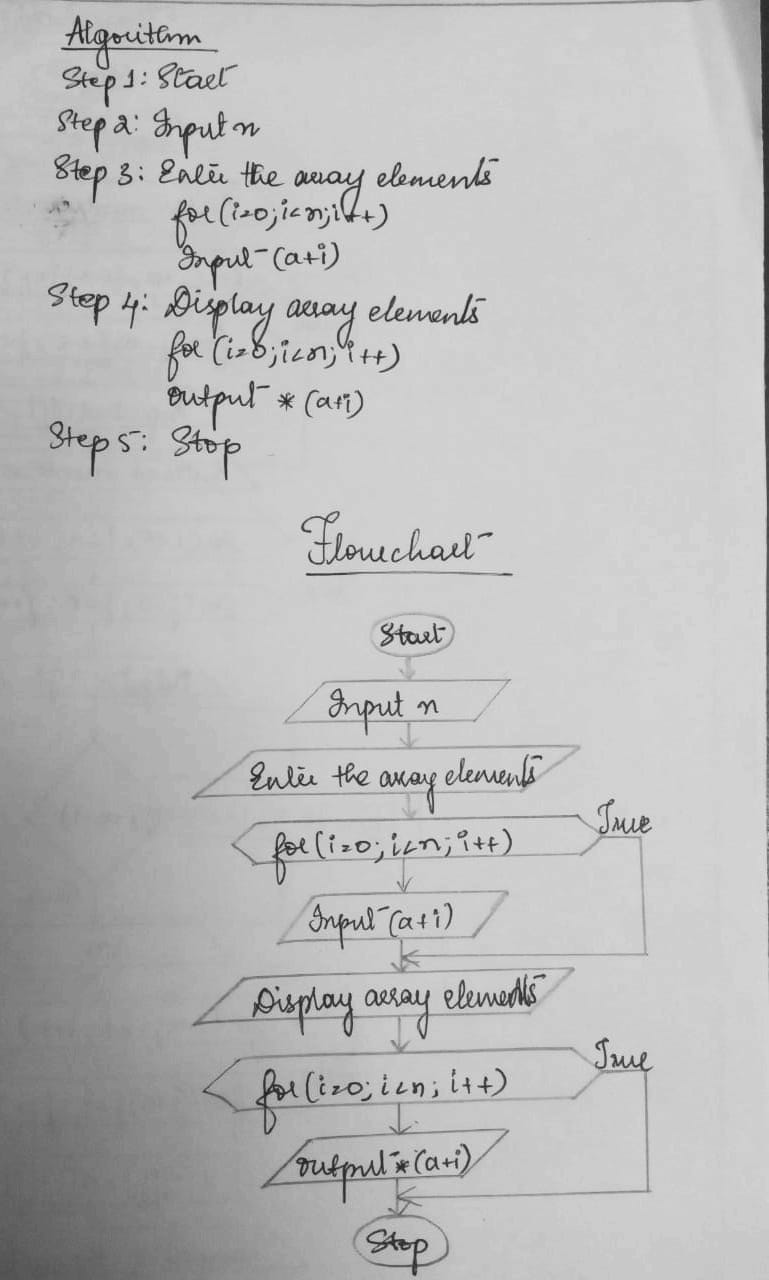 Algorithm
Step 1: Start
Step 2: Input n
Step 3: Enter the array elements
for(i=0;i<n;i++)
Input (a+i)
Step 4: Display array elements
for (i=0;i<n;i++)
output *(a+i)
Step 5: Stop
Flowchart
Start
Input n
Enter the array elements
for(i=0;i<n;i++)
True
Input (a+i)
Display array elements
for(i=0;i<n;i++)
True
output *(a+i)
Stop